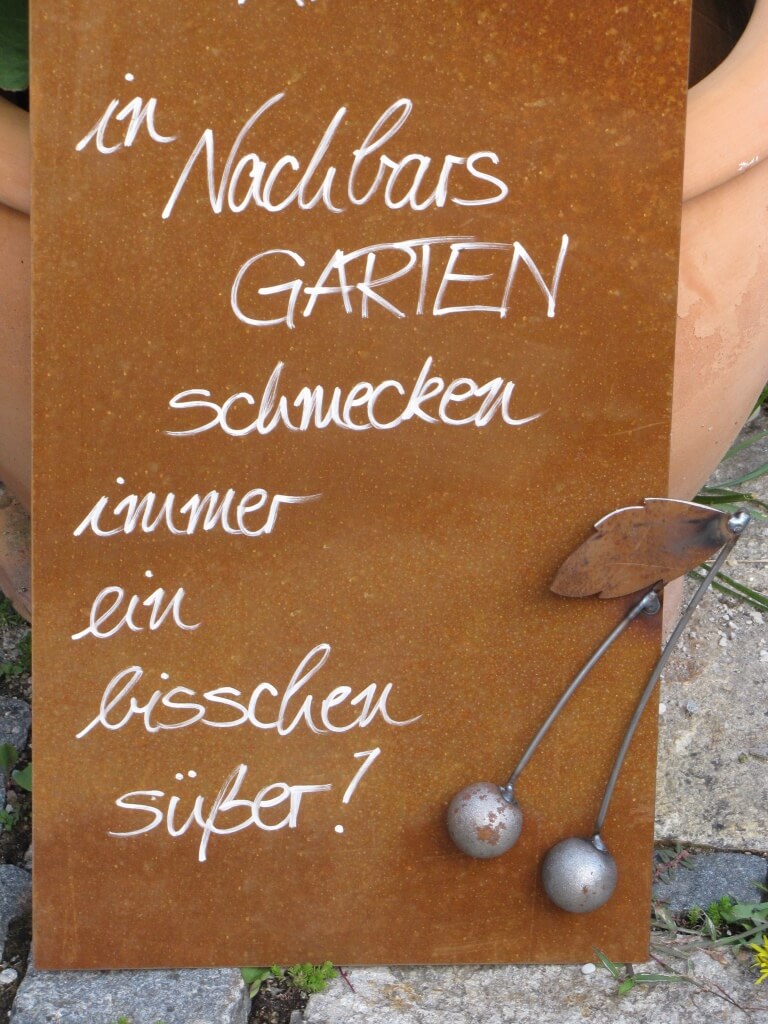 in
Nachbars
GARTEN
schmecken
immer
ein
bisschen
süßer!